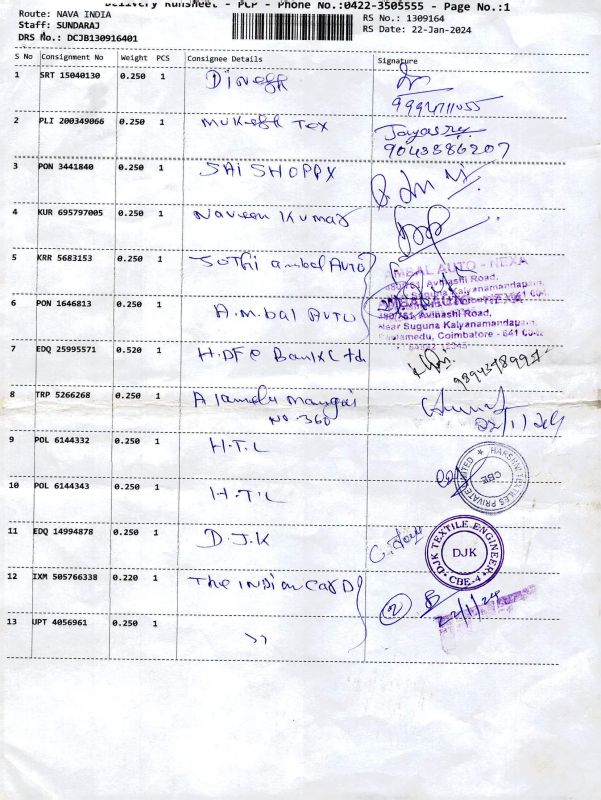 Delivery Runsheet - PCP - Phone No.:0422-3505555 - Page No.:1
Route: NAVA INDIA
RS No.: 1309164
Staff: SUNDARAJ
RS Date: 22-Jan-2024
DRS No.: DCJB130916401
S No Consignment No Weight PCS Consignee Details Signature
1 SRT 15040130 0.250 1 Dinesh
2 PLI 200349066 0.250 1 Mukesh Tex Jayasree
9043886207
3 PON 3441840 0.250 1 SAI SHOPPX
4 KUR 695797005 0.250 1 Naveen Kumar
5 KRR 5683153 0.250 1 Sothi ambal Auto
AMBAL AUTO - NEXA
Avinashi Road,
Suguna Kalyanamandapam,
6 PON 1646813 0.250 1 A.m.bal Auto
Avinashi Road,
Near Suguna Kalyanamandapam,
Coimbatore - 641
7 EDQ 25995571 0.520 1 H.DFC Bank Ltd
8 TRP 5266268 0.250 1 Alamelu Mangai
No. 360
22/1/24
9 POL 6144332 0.250 1 H.T.L
TEXTILES PRIVATE LIMITED
CBE
10 POL 6144343 0.250 1 H.T.L
11 EDQ 14994878 0.250 1 D.J.K
DJK TEXTILE ENGINEER
DJK
CBE-4
12 IXM 505766338 0.220 1 The Indian Card
2
22/1/24
13 UPT 4056961 0.250 1 "